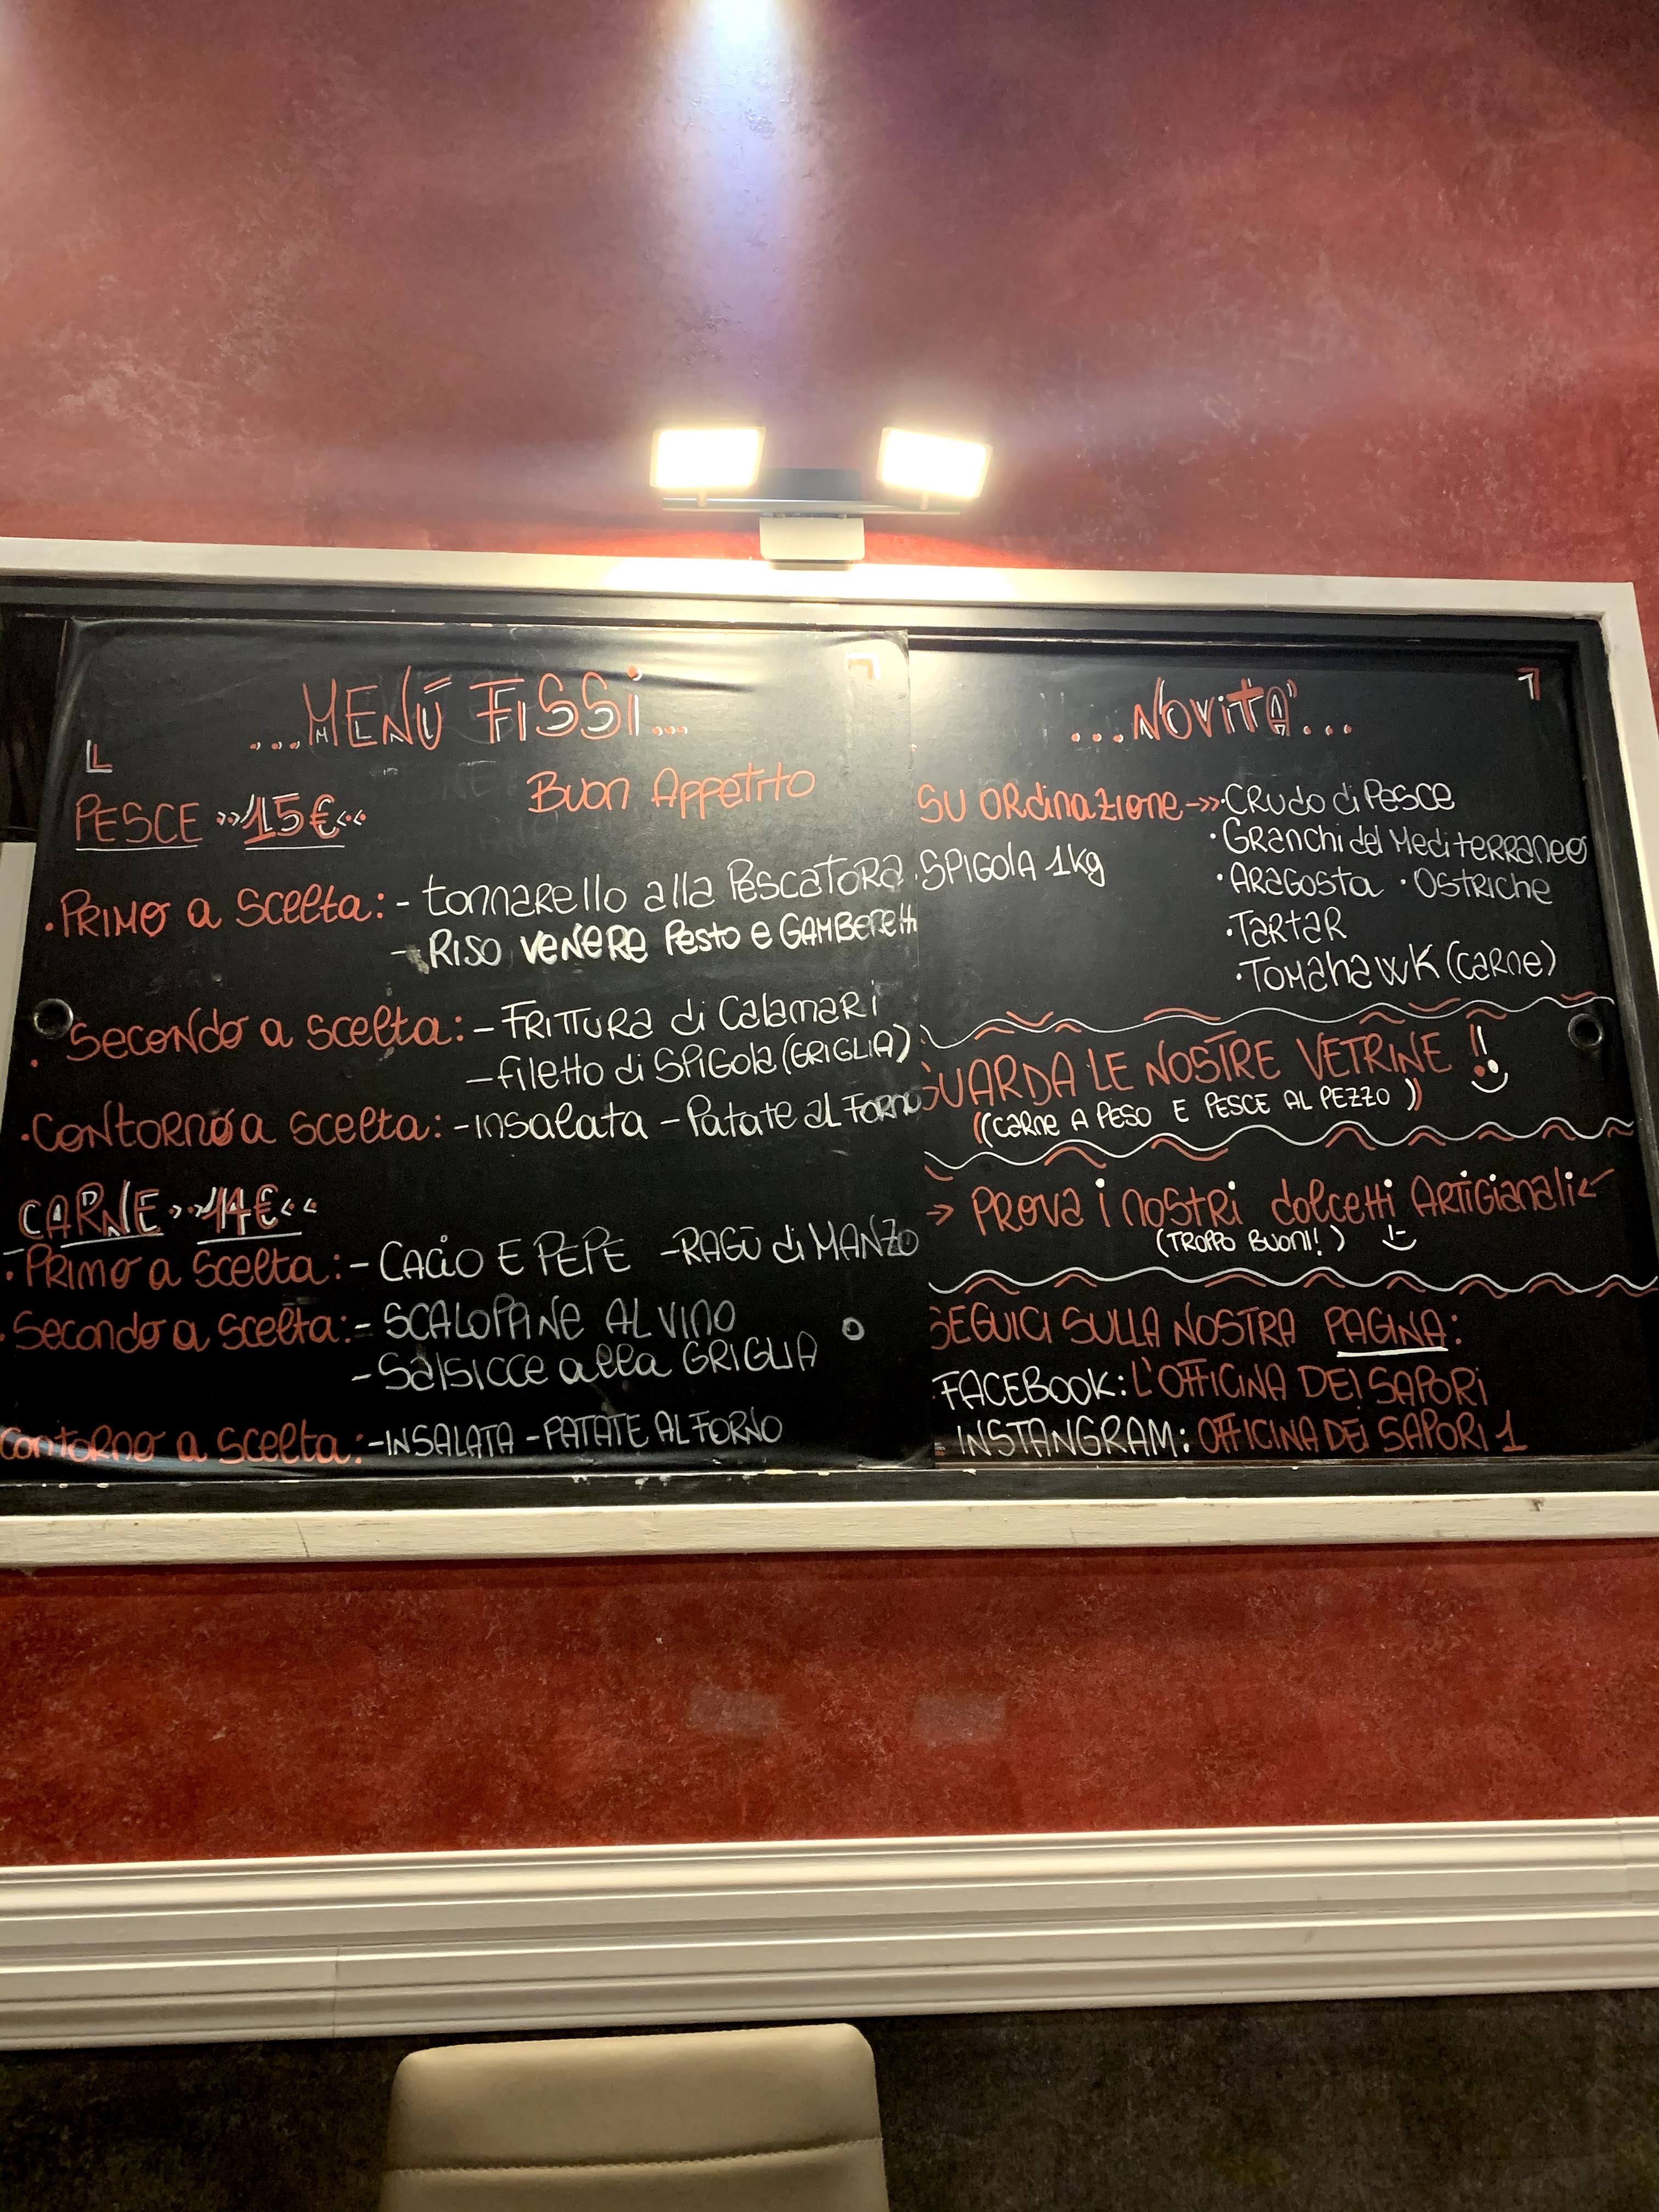 ...MENÚ FISSI...
Buon Appetito
PESCE »15€«
• PRIMO a scelta: - tonnarello alla Pescatora
- RISO VENERE Pesto e GAMBERETTI
• Secondo a scelta: - FRITTURA di Calamari
- filetto di SPIGOla (GRIGLIA)
• Contorno a scelta: - insalata - Patate al Forno
CARNE »14€«
• PRIMO a scelta: - CACIO E PEPE - RAGÙ di MANZO
• Secondo a scelta: - SCALOPPINE AL VINO
- Salsicce alla GRIGLIA
Contorno a scelta: - INSALATA - PATATE AL FORNO
...NOVITA'...
SU ORdinazione ->> • CRUdo di Pesce
• GRanchi del MediteRRaneo
• SPIGOla 1kg
• ARAGOSTA • OSTRICHE
• TaRtaR
• TOMahawK (CaRne)
GUARDA LE NOSTRE VETRINE !!
((CARNE A PESO E PESCE AL PEZZO))
→ PROVa i nostRi dolcetti ARtiGianali ←
(TROPPO BUONI!) :-)
SEGUICI SULLA NOSTRA PAGINA:
FACEBOOK: L'OFFICINA DEI SAPORI
INSTANGRAM: OFFICINA DEI SAPORI 1